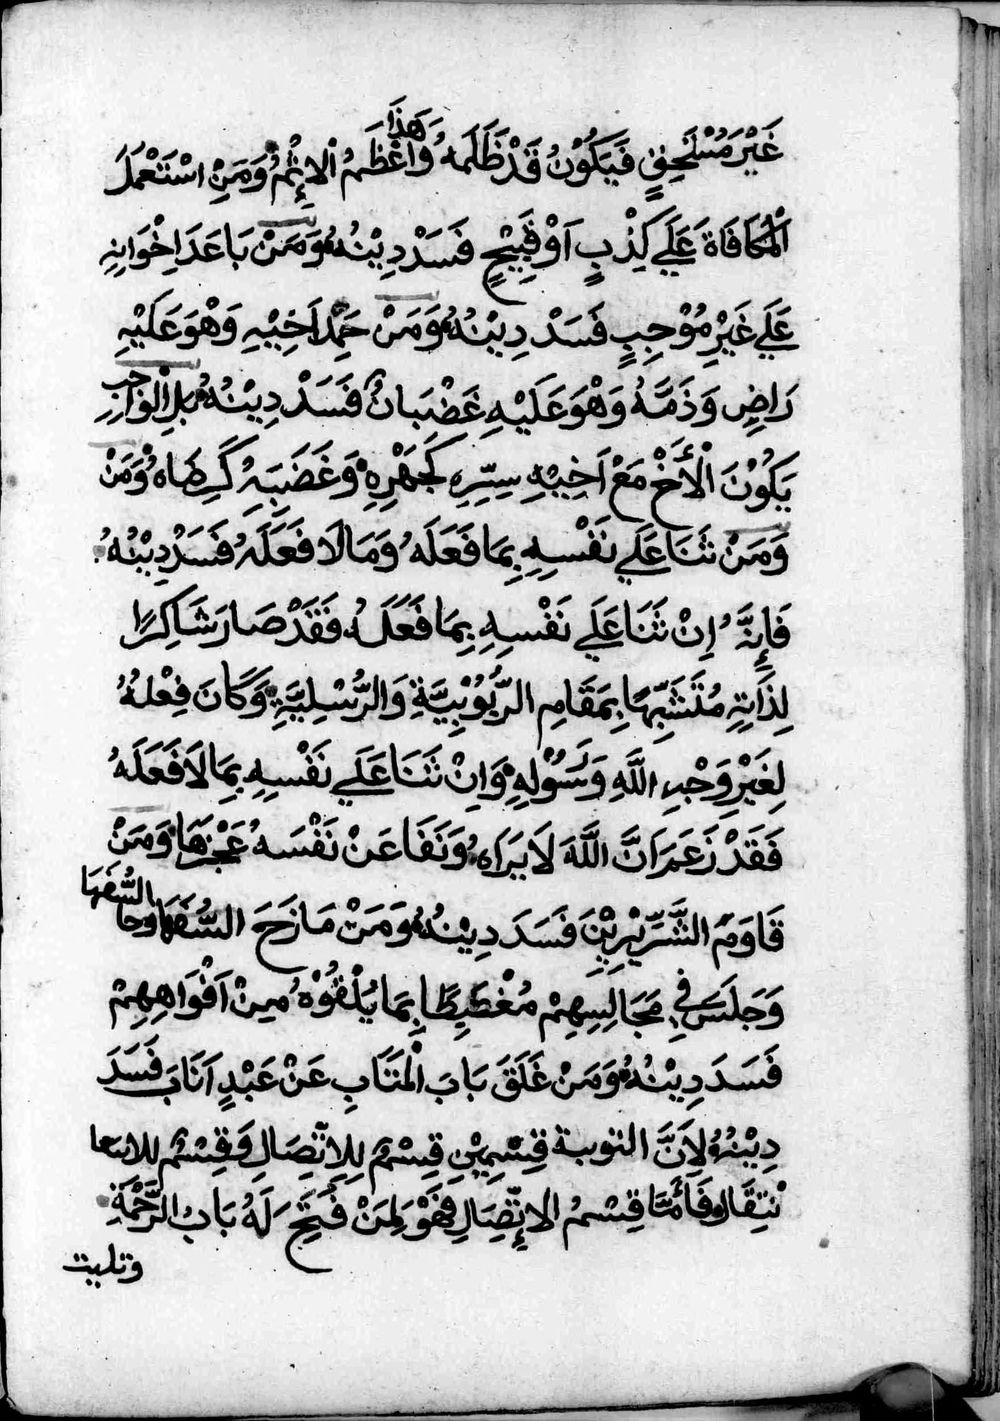 غَيْرَ مُسْتَحِقٍّ فَيَكُوْنُ قَدْ ظَلَمَهُ وَهَذَا اَعْظَمُ الْاِثْمُ وَمَنِ اسْتَعْمَلَ
الْمُكَافَاةَ عَلَي كِذْبٍ اَوْ قَبِيْحٍ فَسَدْ دِيْنُهُ وَمَنْ بَاعَدَ اِخْوَانِهِ
عَلَي غَيْرِ مُوْجِبٍ فَسَدْ دِيْنُهُ وَمَنْ حَمِدَ اَخِيْهِ وَهْوَ عَلَيْهِ
رَاضٍ وَذَمَّهُ وَهْوَ عَلَيْهِ غَضْبَانٌ فَسَدْ دِيْنُهُ بَلِ الْوَاجِبِ
يَكُوْنَ الْأَخْ مَعْ اَخِيْهِ سِرِّهِ كَجَهْرِهِ وَغَضَبِهِ كَرِضَاهُ وَمَنْ
وَمَنْ ثَنَا عَلَي نَفْسِهِ بِمَا فَعَلَهُ وَمَا لَا فَعَلَهُ فَسَدْ دِيْنُهُ
فَاِنَّهُ اِنْ ثَنَا عَلَي نَفْسِهِ بِمَا فَعَلَهُ فَقَدْ صَارَ شَاكِرًا
لِذَاتِهِ مُتَشَبِّهًا بِمَقَامِ الرُّبُوْبِيَّةِ وَالرُّسْلِيَّةِ وَكَانَ فِعْلُهُ
لِغَيْرِ وَجْهِ اللَّهِ وَرَسُوْلِهِ وَاِنْ ثَنَا عَلَي نَفْسِهِ بِمَا لَا فَعَلَهُ
فَقَدْ زَعَمَ اَنَّ اللَّهَ لَا يَرَاهُ وَنَفَا عَنْ نَفْسَهُ عَجْزَهَا وَمَنْ
قَاوَمَ الشَّرِّيْرِيْنَ فَسَدَ دِيْنُهُ وَمَنْ مَازَحَ السُّفَهَا وَحَا السُّفَهَا
وَجَلَسَ فِي مَجَالِسِهِمْ مُغْطَبِطًا بِمَا يُلْقُوْهُ مِنْ اَفْوَاهِهِمْ
فَسَدَ دِيْنُهُ وَمَنْ غَلَقَ بَابَ الْمَتَابِ عَنْ عَبْدٍ اَنَابَ فَسَدَ
دِيْنُهُ لِاَنَّ التوبة قِسْمِيْنِ قِسْمٌ لِلِاتِّصَالِ وَقِسْمٌ للا
نْتِقَالِ فَأَمَّا قِسْمُ الاِتِّصَالِ فَهْوَ لِمَنْ فُتِحَ لَهُ بَابُ الرَّحْمَةِ
وتليت